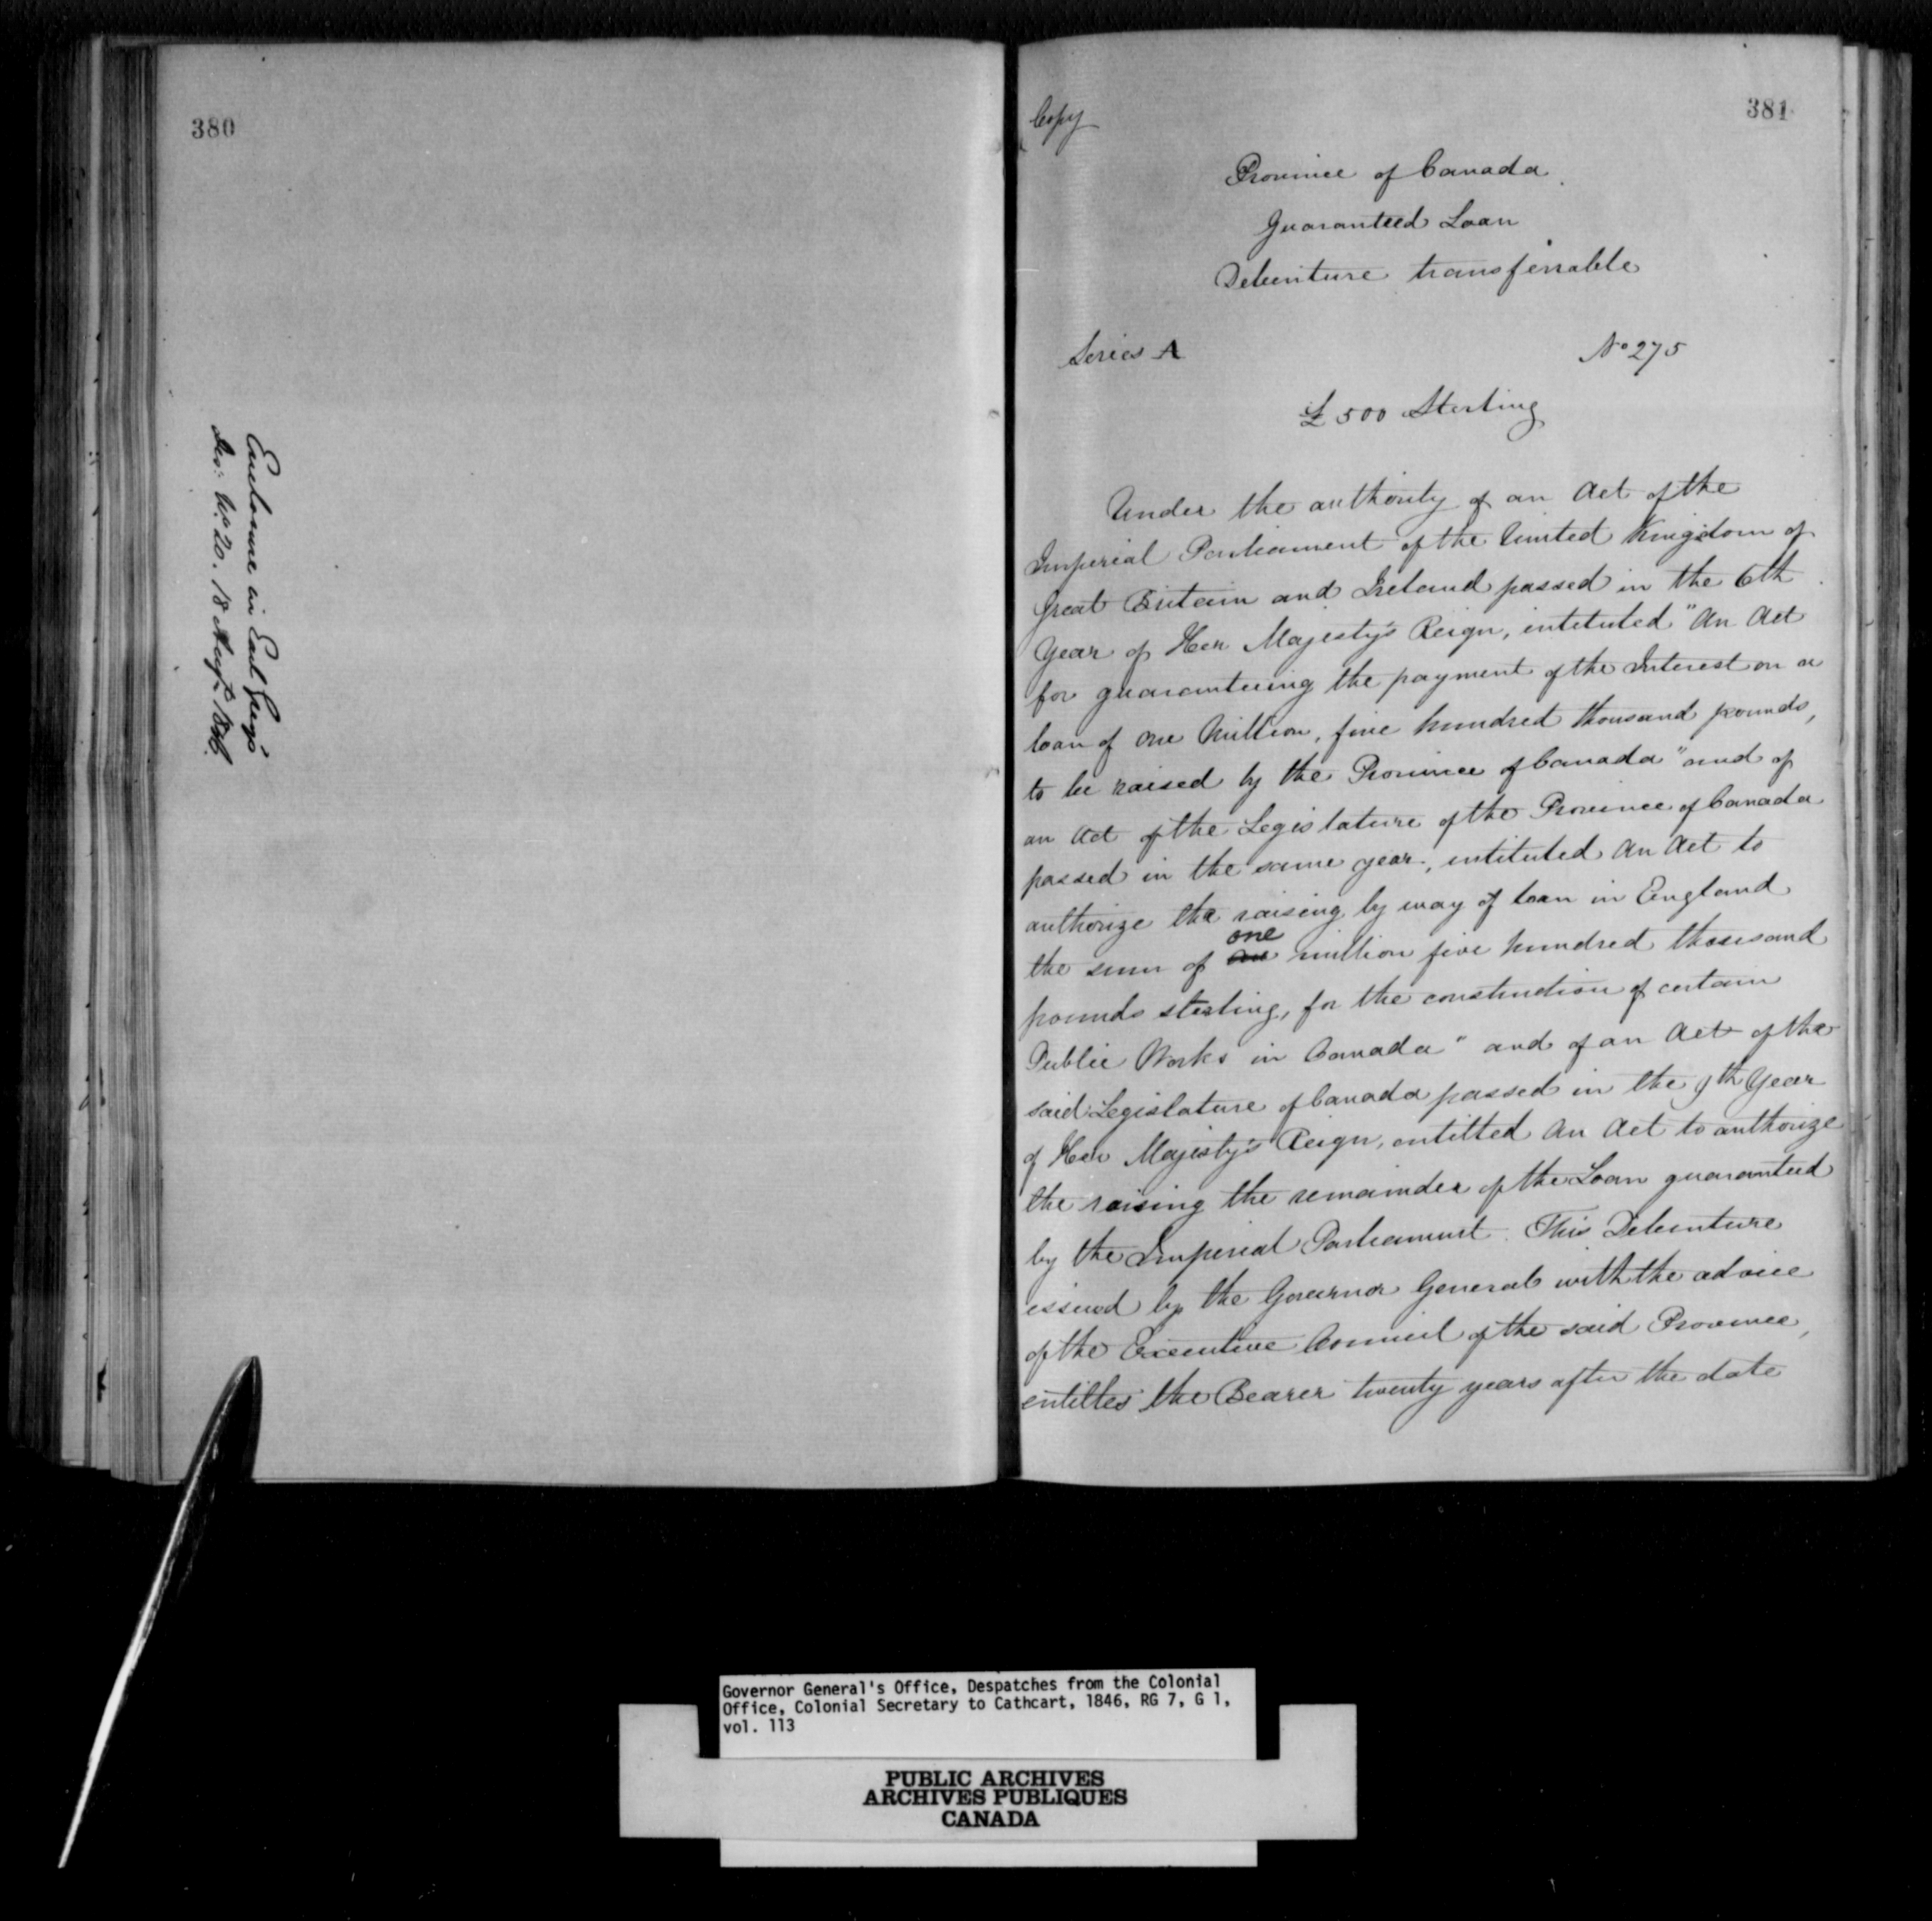 380
Enclosure in Earl Grey's
Des: No. 20. 18 Augt. 1846.
381
Copy
Province of Canada
Guaranteed Loan
Debenture transferrable
Series A
No 275
£500 Sterling
Under the authority of an Act of the
Imperial Parliament of the United Kingdom of
Great Britain and Ireland passed in the 6th
Year of Her Majesty's Reign, intituled "An Act
for guaranteeing the payment of the Interest on a
loan of one Million, five hundred thousand pounds,
to be raised by the Province of Canada" and of
an Act of the Legislature of the Province of Canada
passed in the same year, intituled An Act to
authorize the raising by way of loan in England
the sum of one million five hundred thousand
pounds sterling, for the construction of certain
Public Works in Canada" and of an Act of the
said Legislature of Canada passed in the 9th Year
of Her Majesty's Reign, entitled An Act to authorize
the raising the remainder of the Loan guaranteed
by the Imperial Parliament. This Debenture
issued by the Governor General with the advice
of the Executive Council of the said Province,
entitles the Bearer twenty years after the date
Governor General's Office, Despatches from the Colonial
Office, Colonial Secretary to Cathcart, 1846, RG 7, G 1,
vol. 113
PUBLIC ARCHIVES
ARCHIVES PUBLIQUES
CANADA